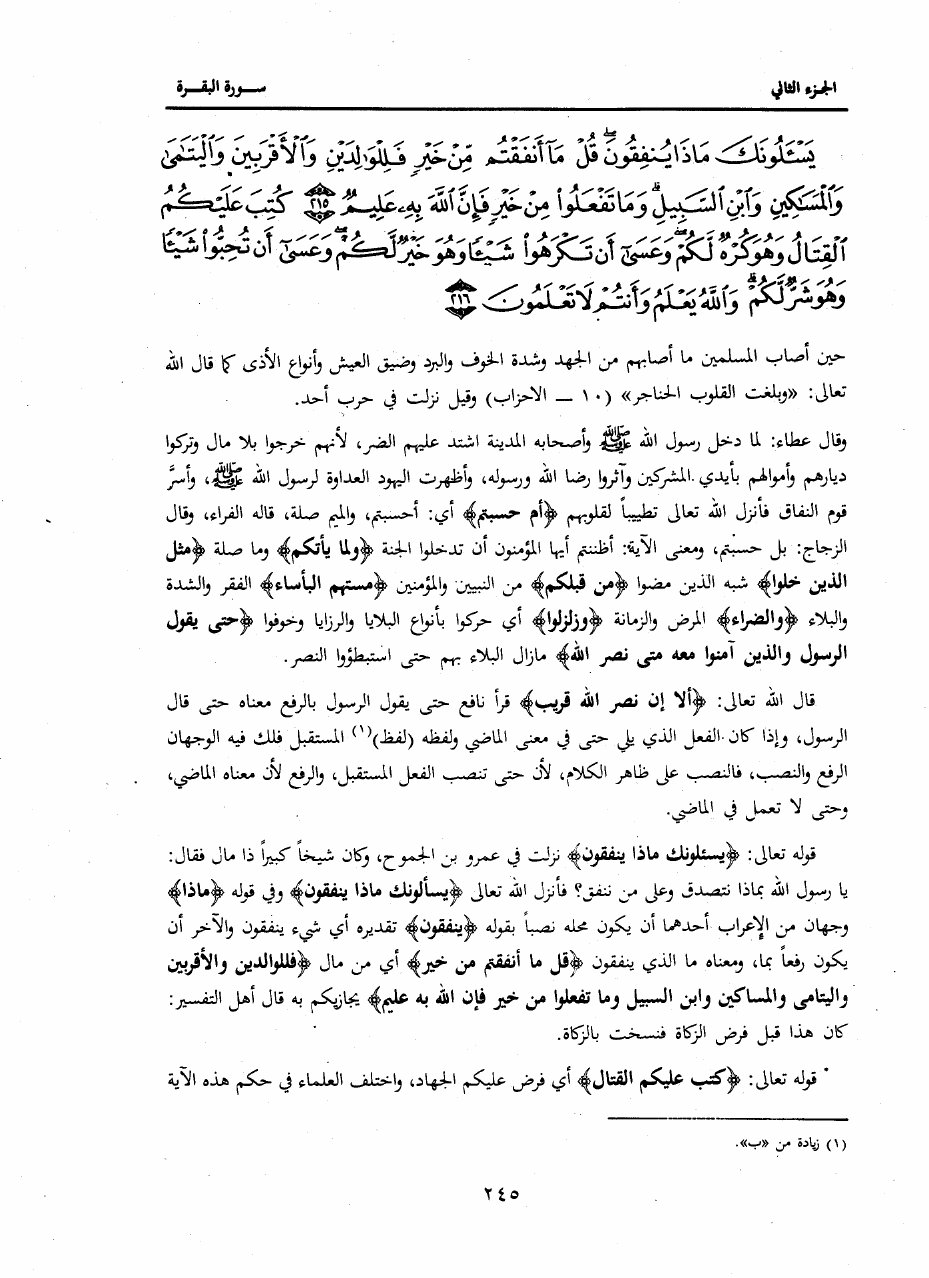 الجزء الثاني
سورة البقرة
يَسْـَٔلُونَكَ مَاذَا يُنفِقُونَ ۖ قُلْ مَآ أَنفَقْتُم مِّنْ خَيْرٍ فَلِلْوَٰلِدَيْنِ وَٱلْأَقْرَبِينَ وَٱلْيَتَٰمَىٰ
وَٱلْمَسَٰكِينِ وَٱبْنِ ٱلسَّبِيلِ ۗ وَمَا تَفْعَلُوا۟ مِنْ خَيْرٍ فَإِنَّ ٱللَّهَ بِهِۦ عَلِيمٌ ٢١٥ كُتِبَ عَلَيْكُمُ
ٱلْقِتَالُ وَهُوَ كُرْهٌ لَّكُمْ ۖ وَعَسَىٰٓ أَن تَكْرَهُوا۟ شَيْـًٔا وَهُوَ خَيْرٌ لَّكُمْ ۖ وَعَسَىٰٓ أَن تُحِبُّوا۟ شَيْـًٔا
وَهُوَ شَرٌّ لَّكُمْ ۗ وَٱللَّهُ يَعْلَمُ وَأَنتُمْ لَا تَعْلَمُونَ ٢١٦
حين أصاب المسلمين ما أصابهم من الجهد وشدة الخوف والبرد وضيق العيش وأنواع الأذى كما قال الله
تعالى: «وبلغت القلوب الحناجر» (١٠ ــ الاحزاب) وقيل نزلت في حرب أحد.
وقال عطاء: لما دخل رسول الله ﷺ وأصحابه المدينة اشتد عليهم الضر، لأنهم خرجوا بلا مال وتركوا
ديارهم وأموالهم بأيدي المشركين وآثروا رضا الله ورسوله، وأظهرت اليهود العداوة لرسول الله ﷺ، وأسرَّ
قوم النفاق فأنزل الله تعالى تطييباً لقلوبهم ﴿أم حسبتم﴾ أي: أحسبتم، والميم صلة، قاله الفراء، وقال
الزجاج: بل حسبتم، ومعنى الآية: أظننتم أيها المؤمنون أن تدخلوا الجنة ﴿ولما يأتكم﴾ وما صلة ﴿مثل
الذين خلوا﴾ شبه الذين مضوا ﴿من قبلكم﴾ من النبيين والمؤمنين ﴿مستهم البأساء﴾ الفقر والشدة
والبلاء ﴿والضراء﴾ المرض والزمانة ﴿وزلزلوا﴾ أي حركوا بأنواع البلايا والرزايا وخوفوا ﴿حتى يقول
الرسول والذين آمنوا معه متى نصر الله﴾ مازال البلاء بهم حتى استبطؤوا النصر.
قال الله تعالى: ﴿ألا إن نصر الله قريب﴾ قرأ نافع حتى يقول الرسول بالرفع معناه حتى قال
الرسول، وإذا كان الفعل الذي يلي حتى في معنى الماضي ولفظه (لفظ)(١) المستقبل فلك فيه الوجهان
الرفع والنصب، فالنصب على ظاهر الكلام، لأن حتى تنصب الفعل المستقبل، والرفع لأن معناه الماضي،
وحتى لا تعمل في الماضي.
قوله تعالى: ﴿يسئلونك ماذا ينفقون﴾ نزلت في عمرو بن الجموح، وكان شيخاً كبيراً ذا مال فقال:
يا رسول الله بماذا نتصدق وعلى من ننفق؟ فأنزل الله تعالى ﴿يسألونك ماذا ينفقون﴾ وفي قوله ﴿ماذا﴾
وجهان من الإعراب أحدهما أن يكون محله نصباً بقوله ﴿ينفقون﴾ تقديره أي شيء ينفقون والآخر أن
يكون رفعاً بما، ومعناه ما الذي ينفقون ﴿قل ما أنفقتم من خير﴾ أي من مال ﴿فللوالدين والأقربين
واليتامى والمساكين وابن السبيل وما تفعلوا من خير فإن الله به عليم﴾ يجازيكم به قال أهل التفسير:
كان هذا قبل فرض الزكاة فنسخت بالزكاة.
قوله تعالى: ﴿كتب عليكم القتال﴾ أي فرض عليكم الجهاد، واختلف العلماء في حكم هذه الآية
(١) زيادة من «ب».
٢٤٥